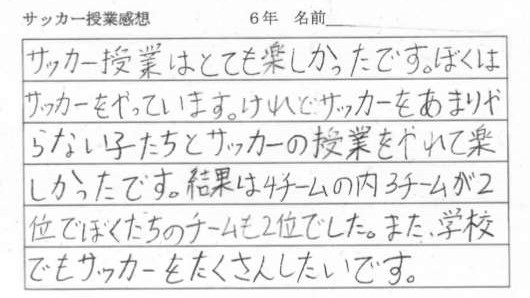 サッカー授業感想 6年 名前
サッカー授業はとても楽しかったです。ぼくは
サッカーをやっています。けれどサッカーをあまりや
らない子たちとサッカーの授業をやれて楽
しかったです。結果は4チームの内3チームが2
位でぼくたちのチームも2位でした。また、学校
でもサッカーをたくさんしたいです。